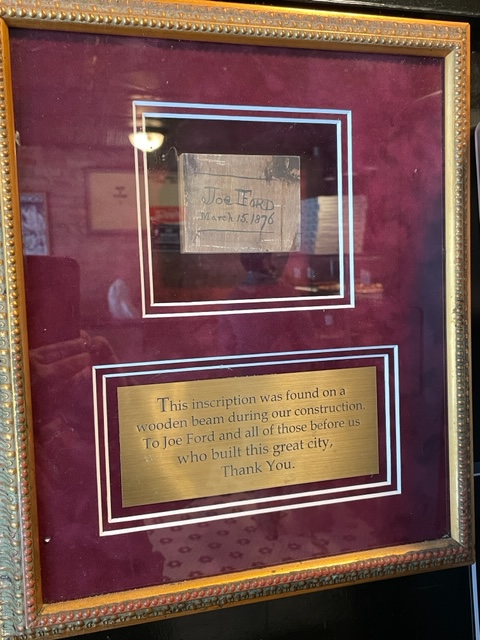 Joe FORD
March 15, 1876
This inscription was found on a
wooden beam during our construction.
To Joe Ford and all of those before us
who built this great city,
Thank You.